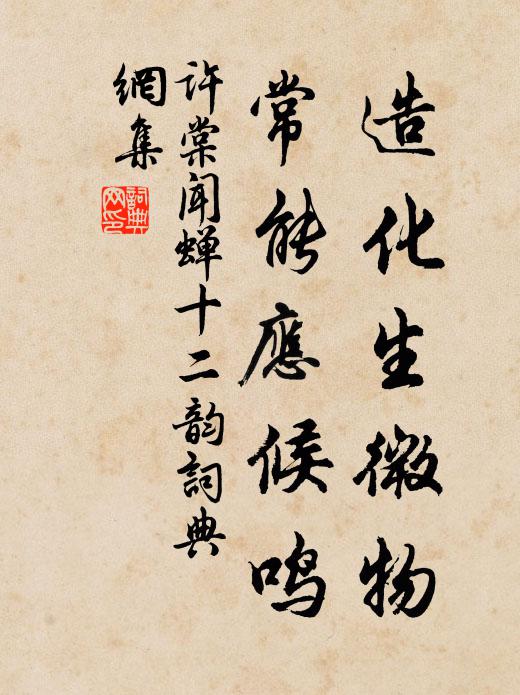 造化生微物
常能應候鳴
许棠闻蝉十二韵詞典
網集
詞典
网印